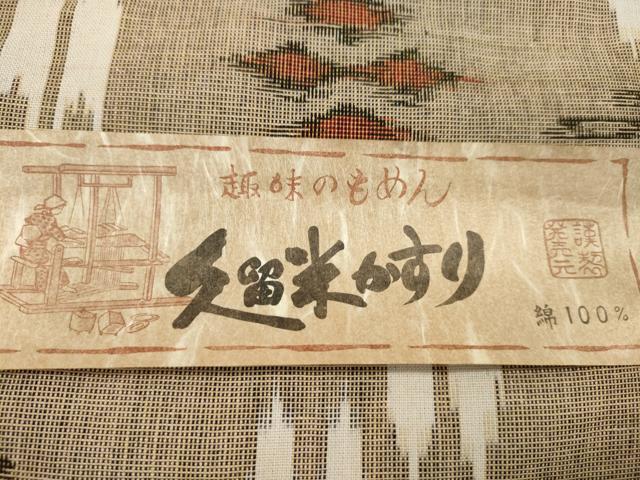 趣味のもめん
久留米かすり
謹製
発売元
綿100%